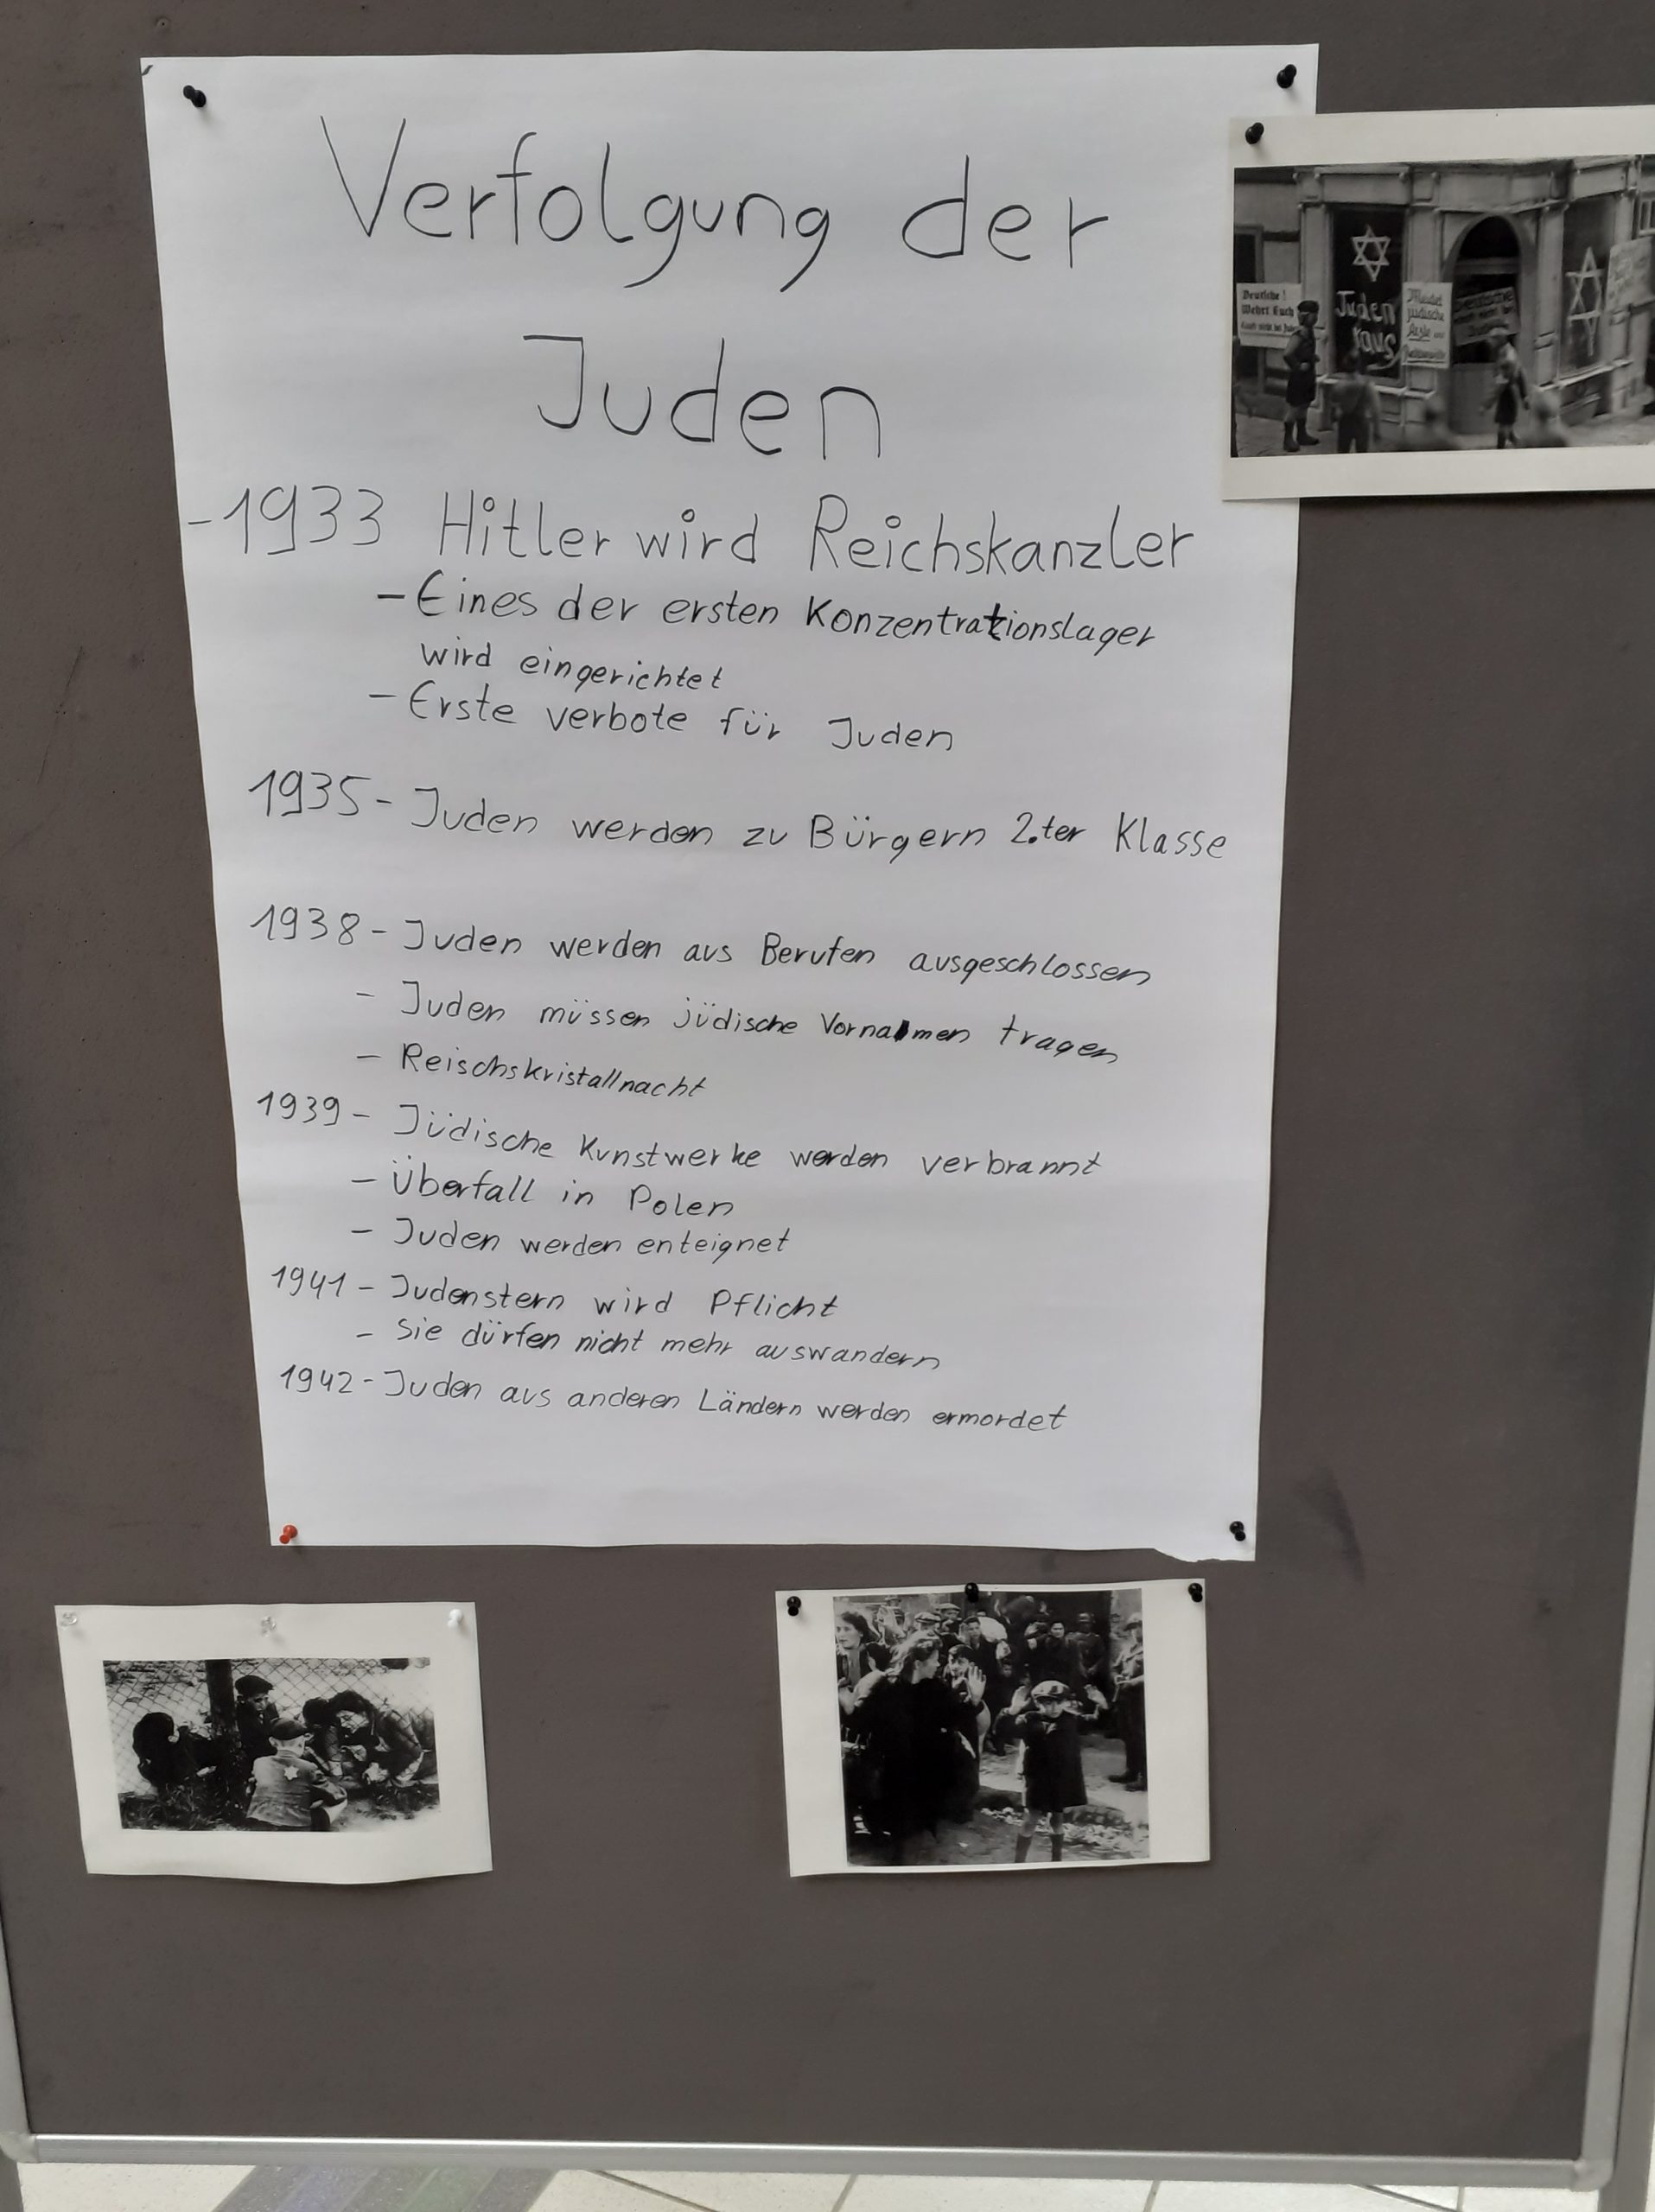 Verfolgung der
Juden
-1933 Hitler wird Reichskanzler
- Eines der ersten Konzentrationslager
wird eingerichtet
- Erste verbote für Juden
1935- Juden werden zu Bürgern 2.ter Klasse
1938- Juden werden aus Berufen ausgeschlossen
- Juden müssen jüdische Vornamen tragen
- Reischskristallnacht
1939- Jüdische Kunstwerke werden verbrannt
- Überfall in Polen
- Juden werden enteignet
1941- Judenstern wird Pflicht
- Sie dürfen nicht mehr auswandern
1942- Juden aus anderen Ländern werden ermordet
Deutsche!
Wehrt Euch
Juden
raus
Meidet
jüdische
Ärzte und